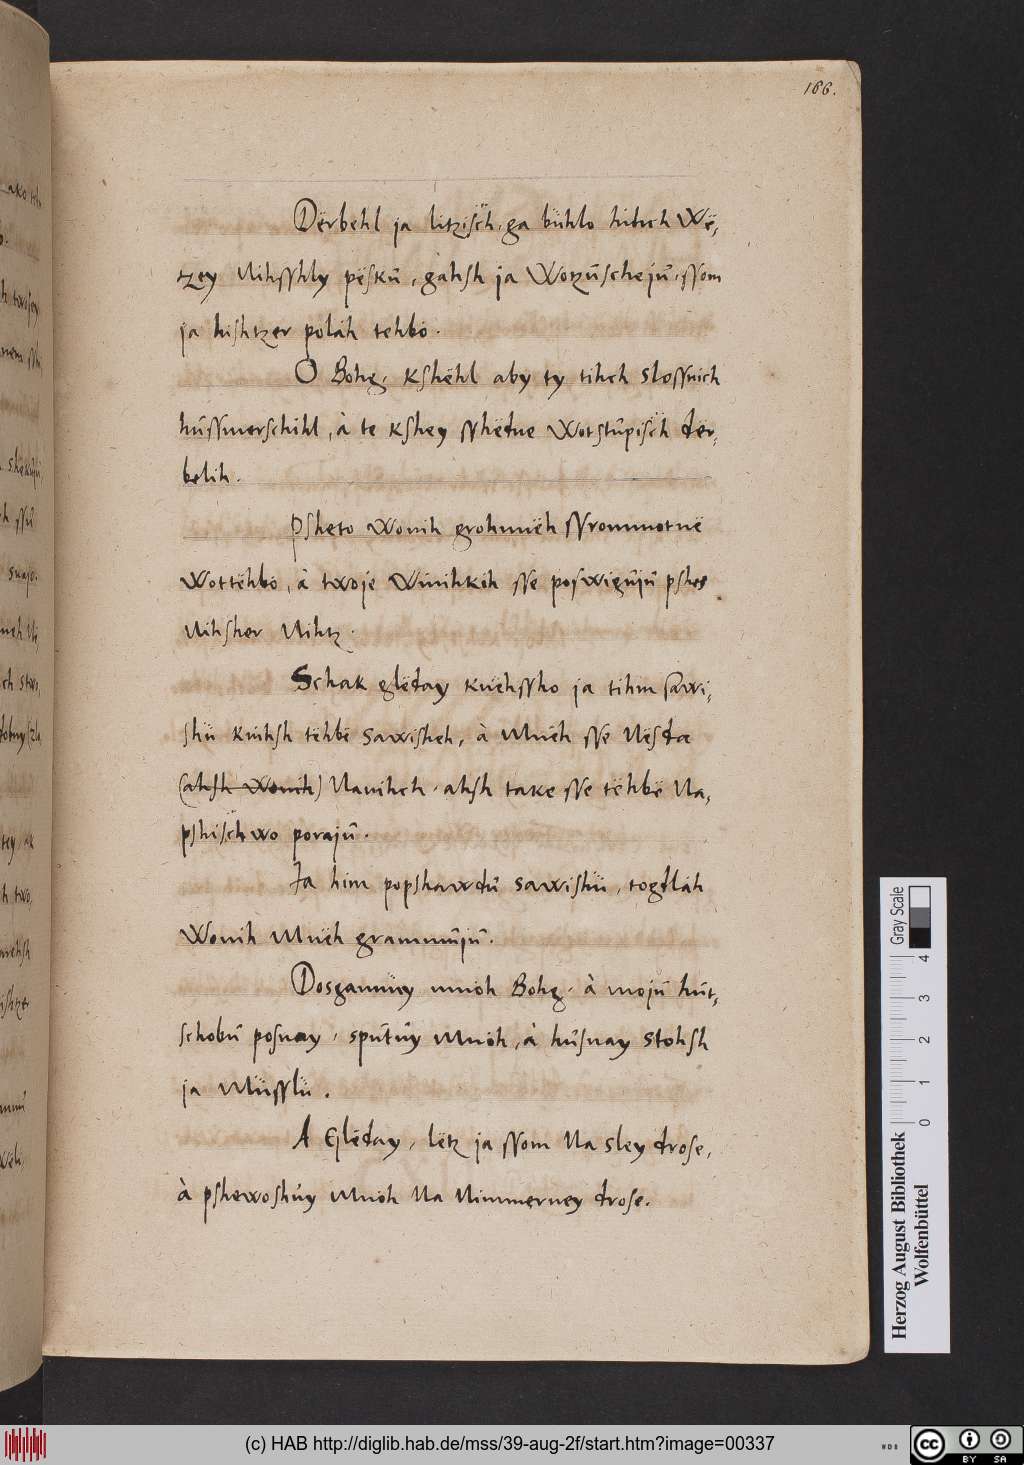 166.
Dërbehl ja litzisch, ga bühlo hihch Wë,
tzey Nihsshly pëskŭ, gahsh ja Wotzŭschejŭ, ssom
ja hishtzer poláh tehbó.
O Bohg, kshëhl aby ty tihch slossnich
hŭssmerschihl, à te kshey sshëdne Wotstŭpisch dër,
belih.
Psheto wonih grohmnëh ssrommotnë
Wottëhbo, à twoje Winihkóh sse poswigŭjŭ pshes
Nihsher Nihtz.
Schak glëday knëhssho ja tihm sawi,
shü knihsh tëhbë sawisheh, à Mnëh sse Nësda
(ahsh Wonih) Nanihch, ahsh take sse tëhbë Na,
pshischwo porajŭ.
Ja him popshawdŭ sawishü, togdláh
Wonih Mnëh grammŭjŭ.
Dosgannüy mnóh Bohg, à mojŭ hŭt,
schobŭ posnay, spŭtŭy Mnóh, à hŭsnay stohsh
ja Müsslü.
A Glëday, lëtz ja ssom Na sley drose,
à pshewoshüy Mnóh Na Nimmerney drose.
Gray Scale
0 1 2 3 4
Herzog August Bibliothek
Wolfenbüttel
(c) HAB http://diglib.hab.de/mss/39-aug-2f/start.htm?image=00337
cc BY SA